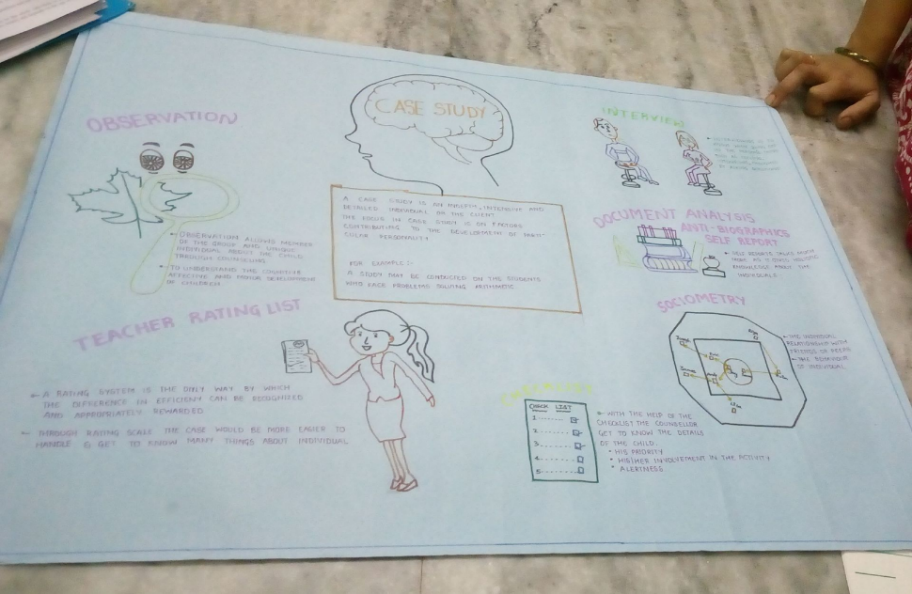 CASE STUDY
A CASE STUDY IS AN INTENSIVE AND
DETAILED INDIVIDUAL OR THE CLIENT
THE FOCUS IN CASE STUDY IS ON FACTORS
CONTRIBUTING TO THE DEVELOPMENT OF PARTI-
CULAR PERSONALITY
FOR EXAMPLE :-
A STUDY MAY BE CONDUCTED ON THE STUDENTS
WHO FACE PROBLEMS SOLVING ARITHMETIC
OBSERVATION
OBSERVATION ALLOWS MEMBER
OF THE GROUP AND
THE CHILD
THROUGH COUNSELLING
TO UNDERSTAND THE COGNITIVE
AFFECTIVE AND DEVELOPMENT
OF CHILDREN
INTERVIEW
DOCUMENT ANALYSIS
ANTI-BIOGRAPHICS
SELF REPORT
KNOWLEDGE ABOUT THE
INDIVIDUALS
TEACHER RATING LIST
A RATING SYSTEM IS THE ONLY WAY BY WHICH
THE DIFFERENCE IN EFFICIENCY CAN BE RECOGNISED
AND APPROPRIATELY REWARDED
THROUGH RATING SCALE THE CASE WOULD BE MORE EASIER TO
HANDLE & GET TO KNOW MANY THINGS ABOUT INDIVIDUAL
SOCIOMETRY
THE INDIVIDUAL
RELATIONSHIP WITH
FRIENDS OR PEERS
THE BEHAVIOUR
OF INDIVIDUAL
CHECK LIST
1
2
3
4
5
WITH THE HELP OF THE
CHECKLIST THE COUNSELLOR
GET TO KNOW THE DETAILS
OF THE CHILD.
• HIS PRIORITY
• HIS/HER INVOLVEMENT IN THE ACTIVITY
• ALERTNESS